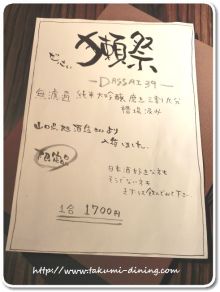 だっさい
獺祭
－DASSAI 39－
無濾過 純米大吟醸 磨き三割九分
槽場汲み
山口県 旭酒造さんより
入荷しました。
限定品
日本酒好きな方も
そうでない方も
まずは飲んでみて下さい
1合 1700円
http://www.takumi-dining.com